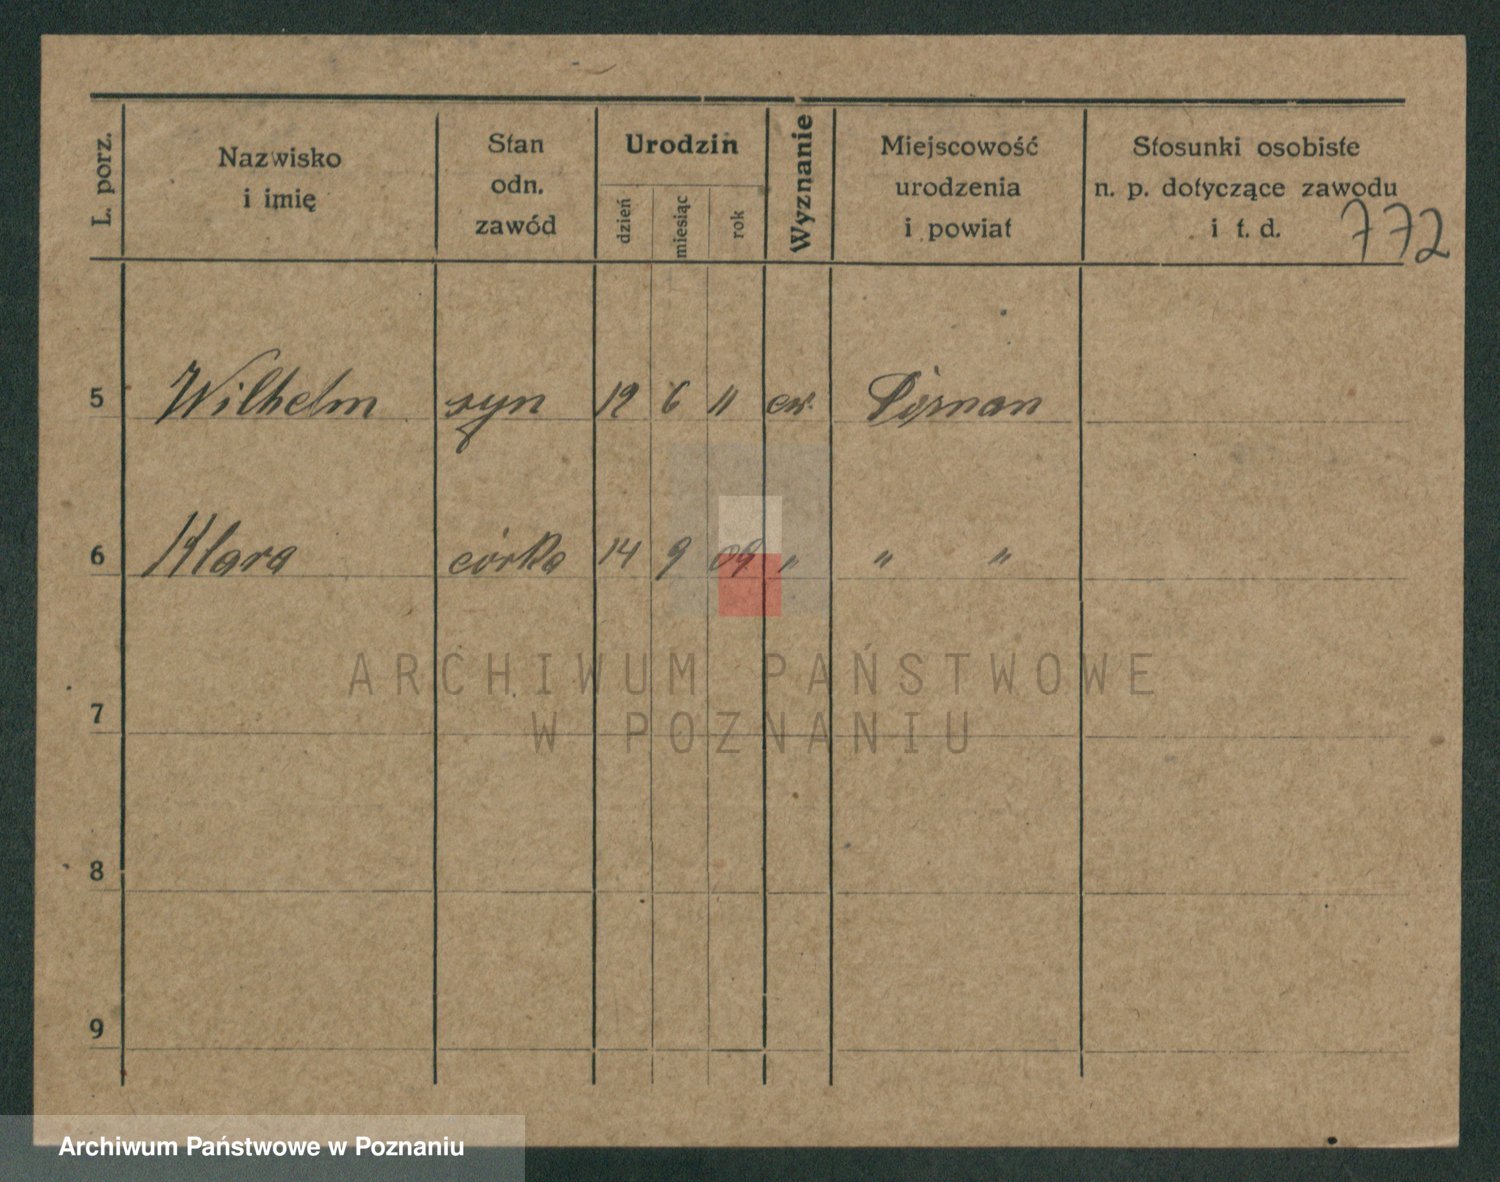 L. porz. Nazwisko i imię Stan odn. zawód Urodzin dzień miesiąc rok Wyznanie Miejscowość urodzenia i powiat Stosunki osobiste n. p. dotyczące zawodu i t. d. 772
5 Wilhelm syn 12 6 11 ew.
6 Klara córka 14 9 09 " " "
7
8
9
ARCHIWUM PAŃSTWOWE
W POZNANIU
Archiwum Państwowe w Poznaniu